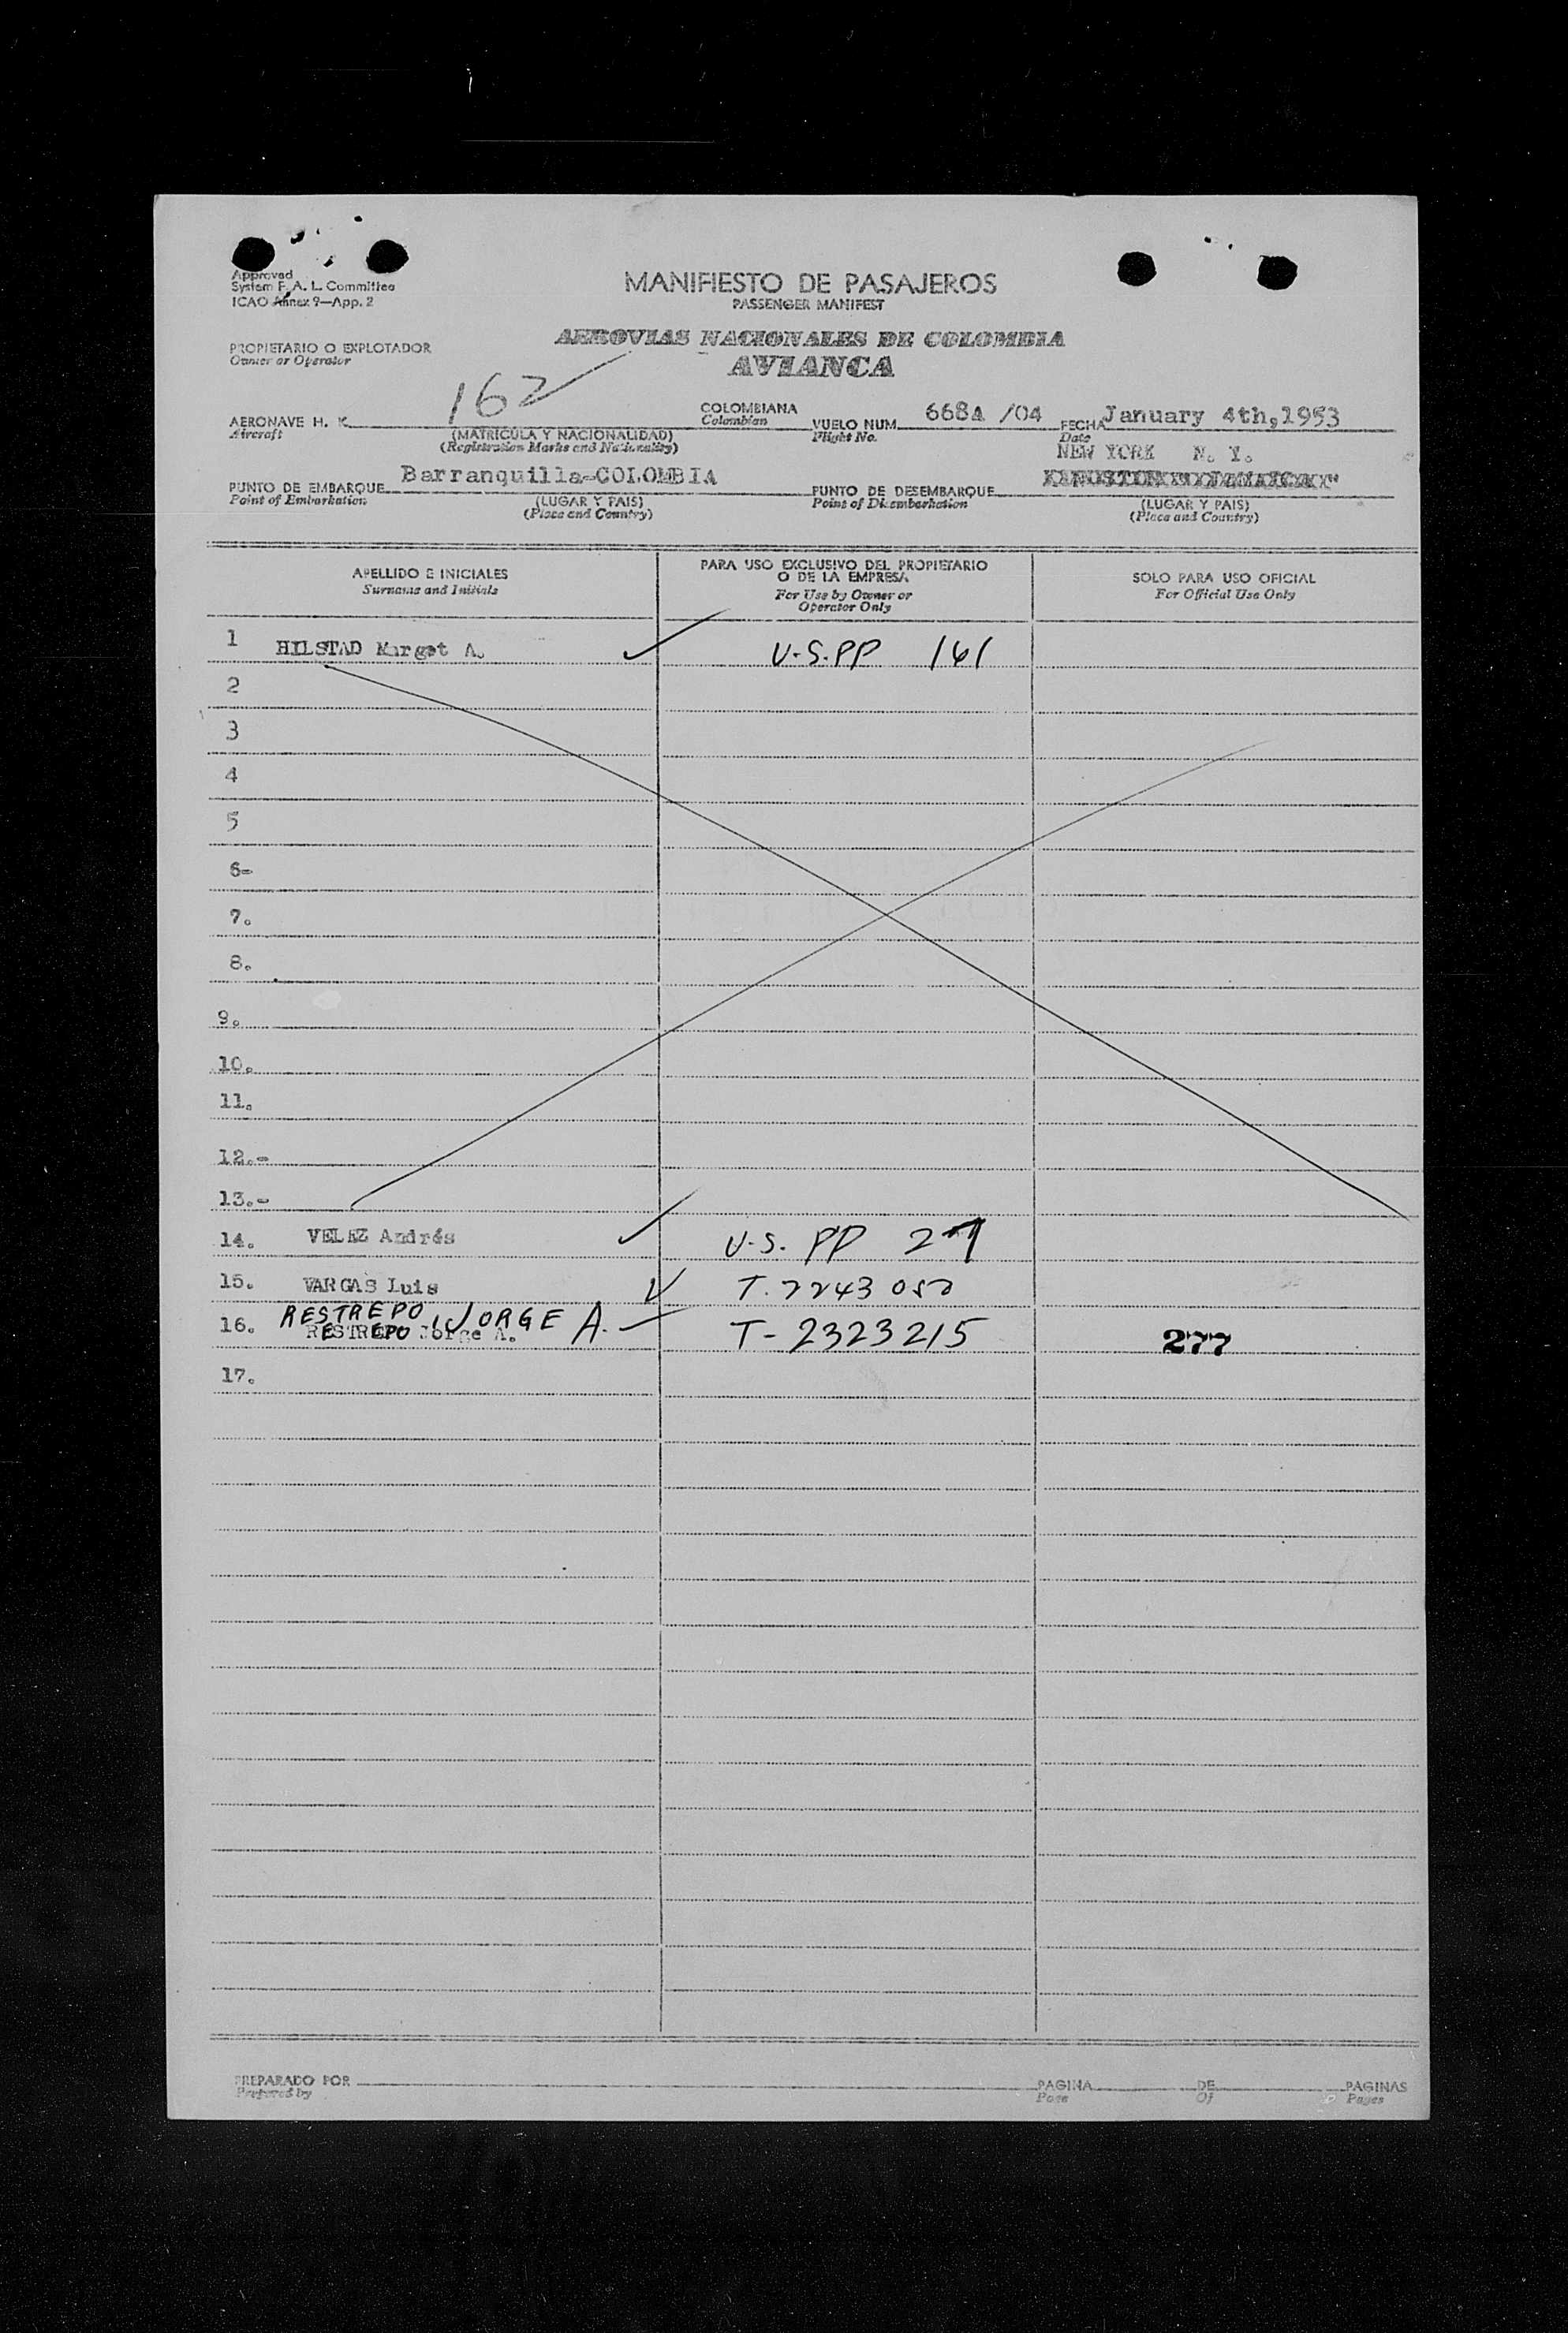 Approved
System F. A. L. Committee
ICAO Annex 9—App. 2
MANIFIESTO DE PASAJEROS
PASSENGER MANIFEST
AEROVIAS NACIONALES DE COLOMBIA
AVIANCA
PROPIETARIO O EXPLOTADOR
Owner or Operator
AERONAVE H. K. 162 COLOMBIANA VUELO NUM. 668A /04 FECHA January 4th,1953
Aircraft (MATRICULA Y NACIONALIDAD) Colombian Flight No. Date
(Registration Marks and Nationality)
NEW YORK N. Y.
PUNTO DE EMBARQUE Barranquilla-COLOMBIA PUNTO DE DESEMBARQUE
Point of Embarkation (LUGAR Y PAIS) Point of Disembarkation (LUGAR Y PAIS)
(Place and Country) (Place and Country)
APELLIDO E INICIALES
Surname and Initials
PARA USO EXCLUSIVO DEL PROPIETARIO
O DE LA EMPRESA
For Use by Owner or
Operator Only
SOLO PARA USO OFICIAL
For Official Use Only
1 HILSTAD Margot A. U.S.PP 161
2
3
4
5
6-
7.
8.
9.
10.
11.
12.-
13.-
14. VELEZ Andrés U.S. PP
15. VARGAS Luis
RESTREPO, JORGE A.
16. RESTREPO Jorge A. T-2323215 277
17.
PREPARADO POR PAGINA DE PAGINAS
Prepared by Page Of Pages